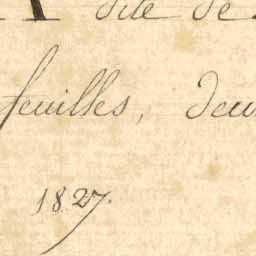 A dite de
feuilles, deux
1827.